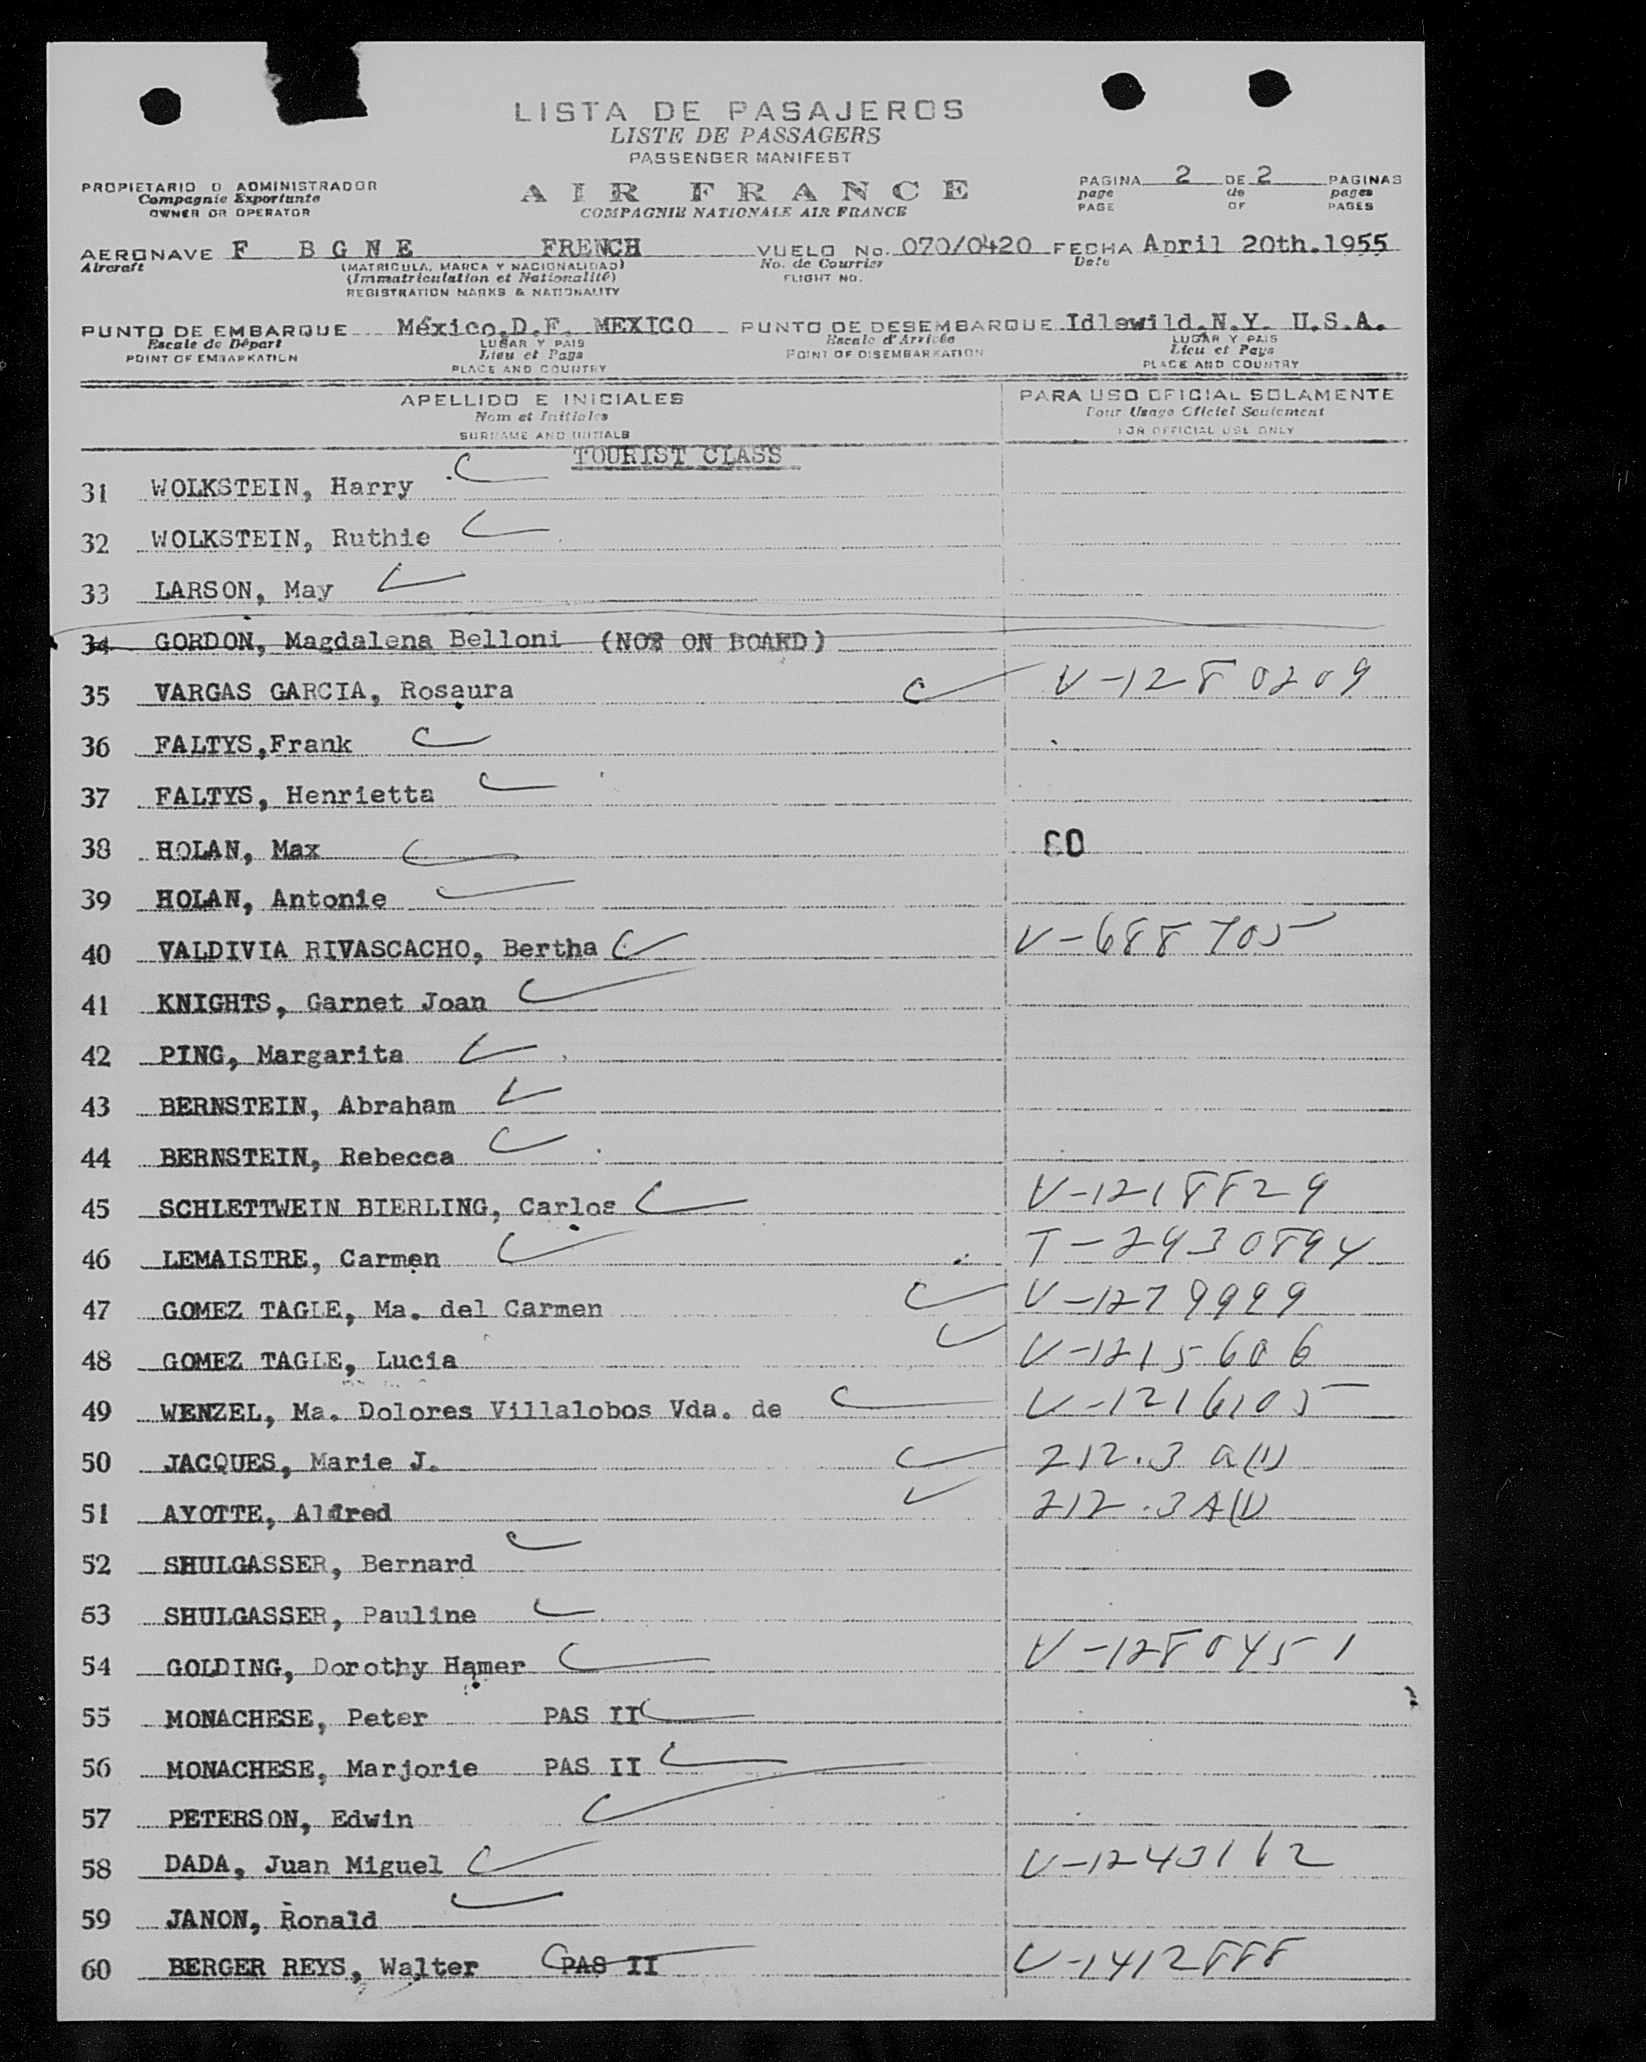 LISTA DE PASAJEROS
LISTE DE PASSAGERS
PASSENGER MANIFEST
PROPIETARIO O ADMINISTRADOR
Compagnie Exportante
OWNER OR OPERATOR
AIR FRANCE
COMPAGNIE NATIONALE AIR FRANCE
PAGINA 2 DE 2 PAGINAS
page de pages
PAGE OF PAGES
AERONAVE F BGNE FRENCH VUELO No. 070/0420 FECHA April 20th.1955
Aircraft (MATRICULA, MARCA Y NACIONALIDAD) No. de Courrier Date
(Immatriculation et Nationalité) FLIGHT NO.
REGISTRATION MARKS & NATIONALITY
PUNTO DE EMBARQUE México,D.F. MEXICO PUNTO DE DESEMBARQUE Idlewild,N.Y. U.S.A.
Escale de Départ LUGAR Y PAIS Escale d'Arrivée LUGAR Y PAIS
POINT OF EMBARKATION Lieu et Pays POINT OF DISEMBARKATION Lieu et Pays
PLACE AND COUNTRY PLACE AND COUNTRY
APELLIDO E INICIALES PARA USO OFICIAL SOLAMENTE
Nom et Initiales Pour Usage Officiel Seulement
SURNAME AND INITIALS FOR OFFICIAL USE ONLY
TOURIST CLASS
31 WOLKSTEIN, Harry
32 WOLKSTEIN, Ruthie
33 LARSON, May
34 GORDON, Magdalena Belloni (NOT ON BOARD)
35 VARGAS GARCIA, Rosaura V-1280209
36 FALTYS,Frank
37 FALTYS, Henrietta
38 HOLAN, Max 60
39 HOLAN, Antonie
40 VALDIVIA RIVASCACHO, Bertha V-688705
41 KNIGHTS, Garnet Joan
42 PING, Margarita
43 BERNSTEIN, Abraham
44 BERNSTEIN, Rebecca
45 SCHLETTWEIN BIERLING, Carlos V-1218829
46 LEMAISTRE, Carmen T-2930894
47 GOMEZ TAGLE, Ma. del Carmen V-1279999
48 GOMEZ TAGLE, Lucia V-1215606
49 WENZEL, Ma. Dolores Villalobos Vda. de V-1216105
50 JACQUES, Marie J. 212.3 a(1)
51 AYOTTE, Aldred 212.3A(1)
52 SHULGASSER, Bernard
53 SHULGASSER, Pauline
54 GOLDING, Dorothy Hamer V-1280451
55 MONACHESE, Peter PAS II
56 MONACHESE, Marjorie PAS II
57 PETERSON, Edwin
58 DADA, Juan Miguel V-1243112
59 JANON, Ronald
60 BERGER REYS, Walter PAS II V-1412888